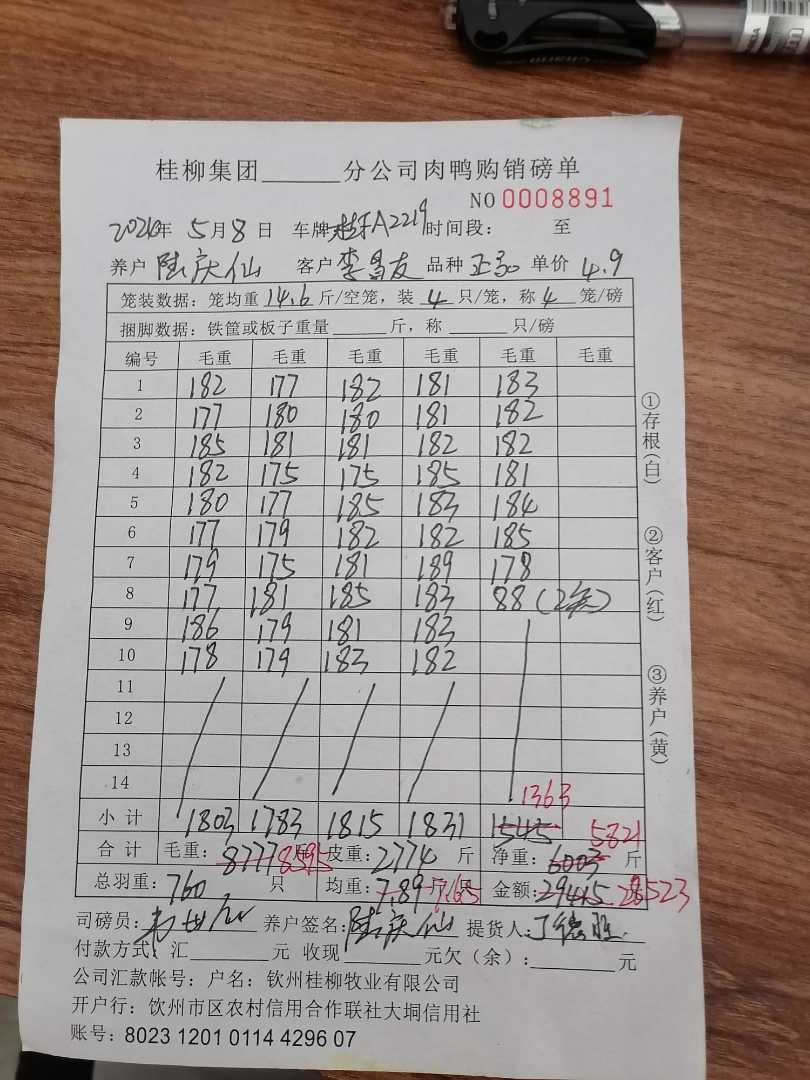 桂柳集团______分公司肉鸭购销磅单
NO 0008891
2020年 5月8日 车牌 A2219 时间段: 至
养户 陆庆仙 客户 李昌友 品种 单价 4.9
笼装数据:笼均重 14.6 斤/空笼,装 4 只/笼,称 4 笼/磅
捆脚数据:铁筐或板子重量______斤,称______只/磅
编号 毛重 毛重 毛重 毛重 毛重 毛重
1 182 177 182 181 183
2 177 180 180 181 182
3 185 181 181 182 182
4 182 175 175 185 181
5 180 177 185 183 184
6 177 179 182 182 185
7 179 175 181 189 178
8 177 181 185 183 88 (2笼)
9 186 179 181 183
10 178 179 183 182
11
12
13
14
1363
小计 1803 1783 1815 1831 1545 5821
合计 毛重:8777 8595 斤 皮重:2774 斤 净重:6003 斤
总羽重:760 只 均重:7.89 7.65 斤 金额:29415 28523
司磅员: 养户签名:陆庆仙 提货人:丁德胜
付款方式:汇______元 收现______元欠(余):______元
公司汇款帐号:户名:钦州桂柳牧业有限公司
开户行:钦州市区农村信用合作联社大垌信用社
账号:8023 1201 0114 4296 07
①存根(白)
②客户(红)
③养户(黄)